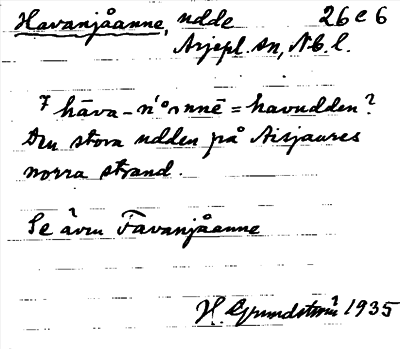 Havanjåanne, udde 26 c 6
Arjepl. sn, Nb. l.
hāva - = havudden?
Den stora udden på Aisjaures
norra strand.
Se även Favanjåanne
H. Grundström 1935